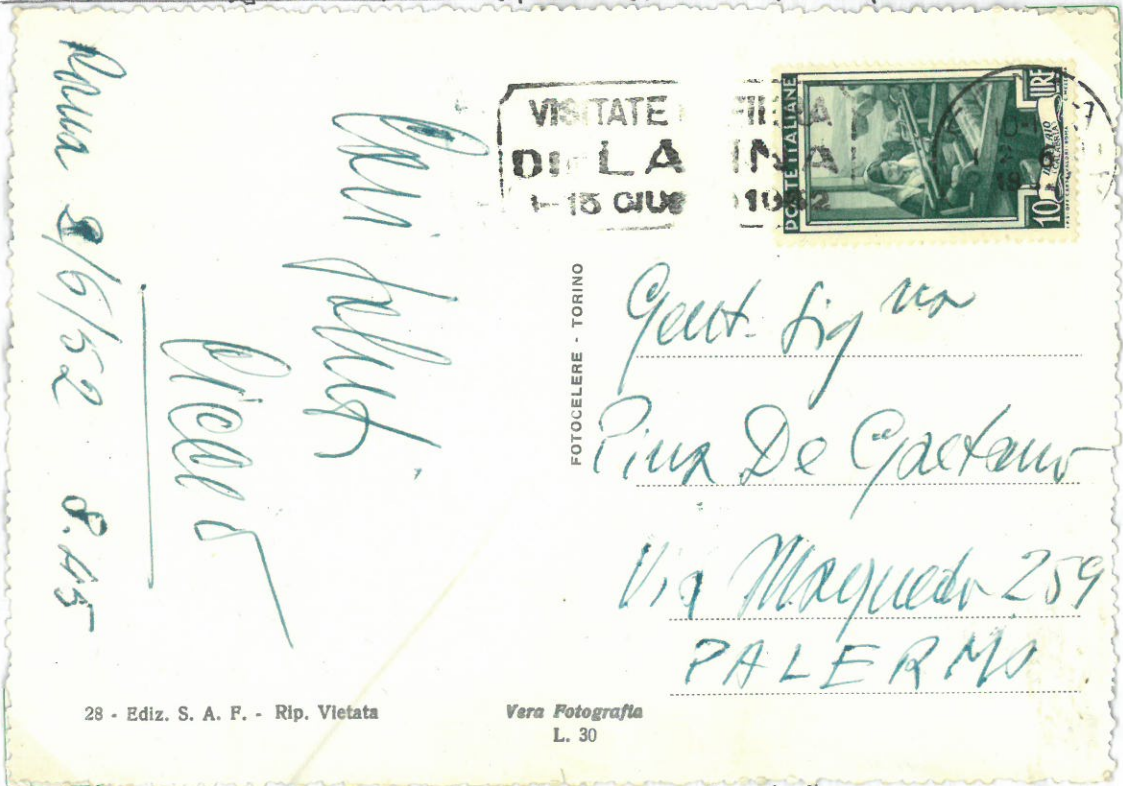 Roma 8/6/52 8.45
Cari saluti
VISITATE FIERA
DI LA INA
1-15 GIUG O 1952
POSTE ITALIANE
10 LIRE
CALABRIA
FOTOCELERE - TORINO
Gent. Sig na
Pina De Gaetano
Via Maqueda 259
PALERMO
28 - Ediz. S. A. F. - Rip. Vietata
Vera Fotografia
L. 30